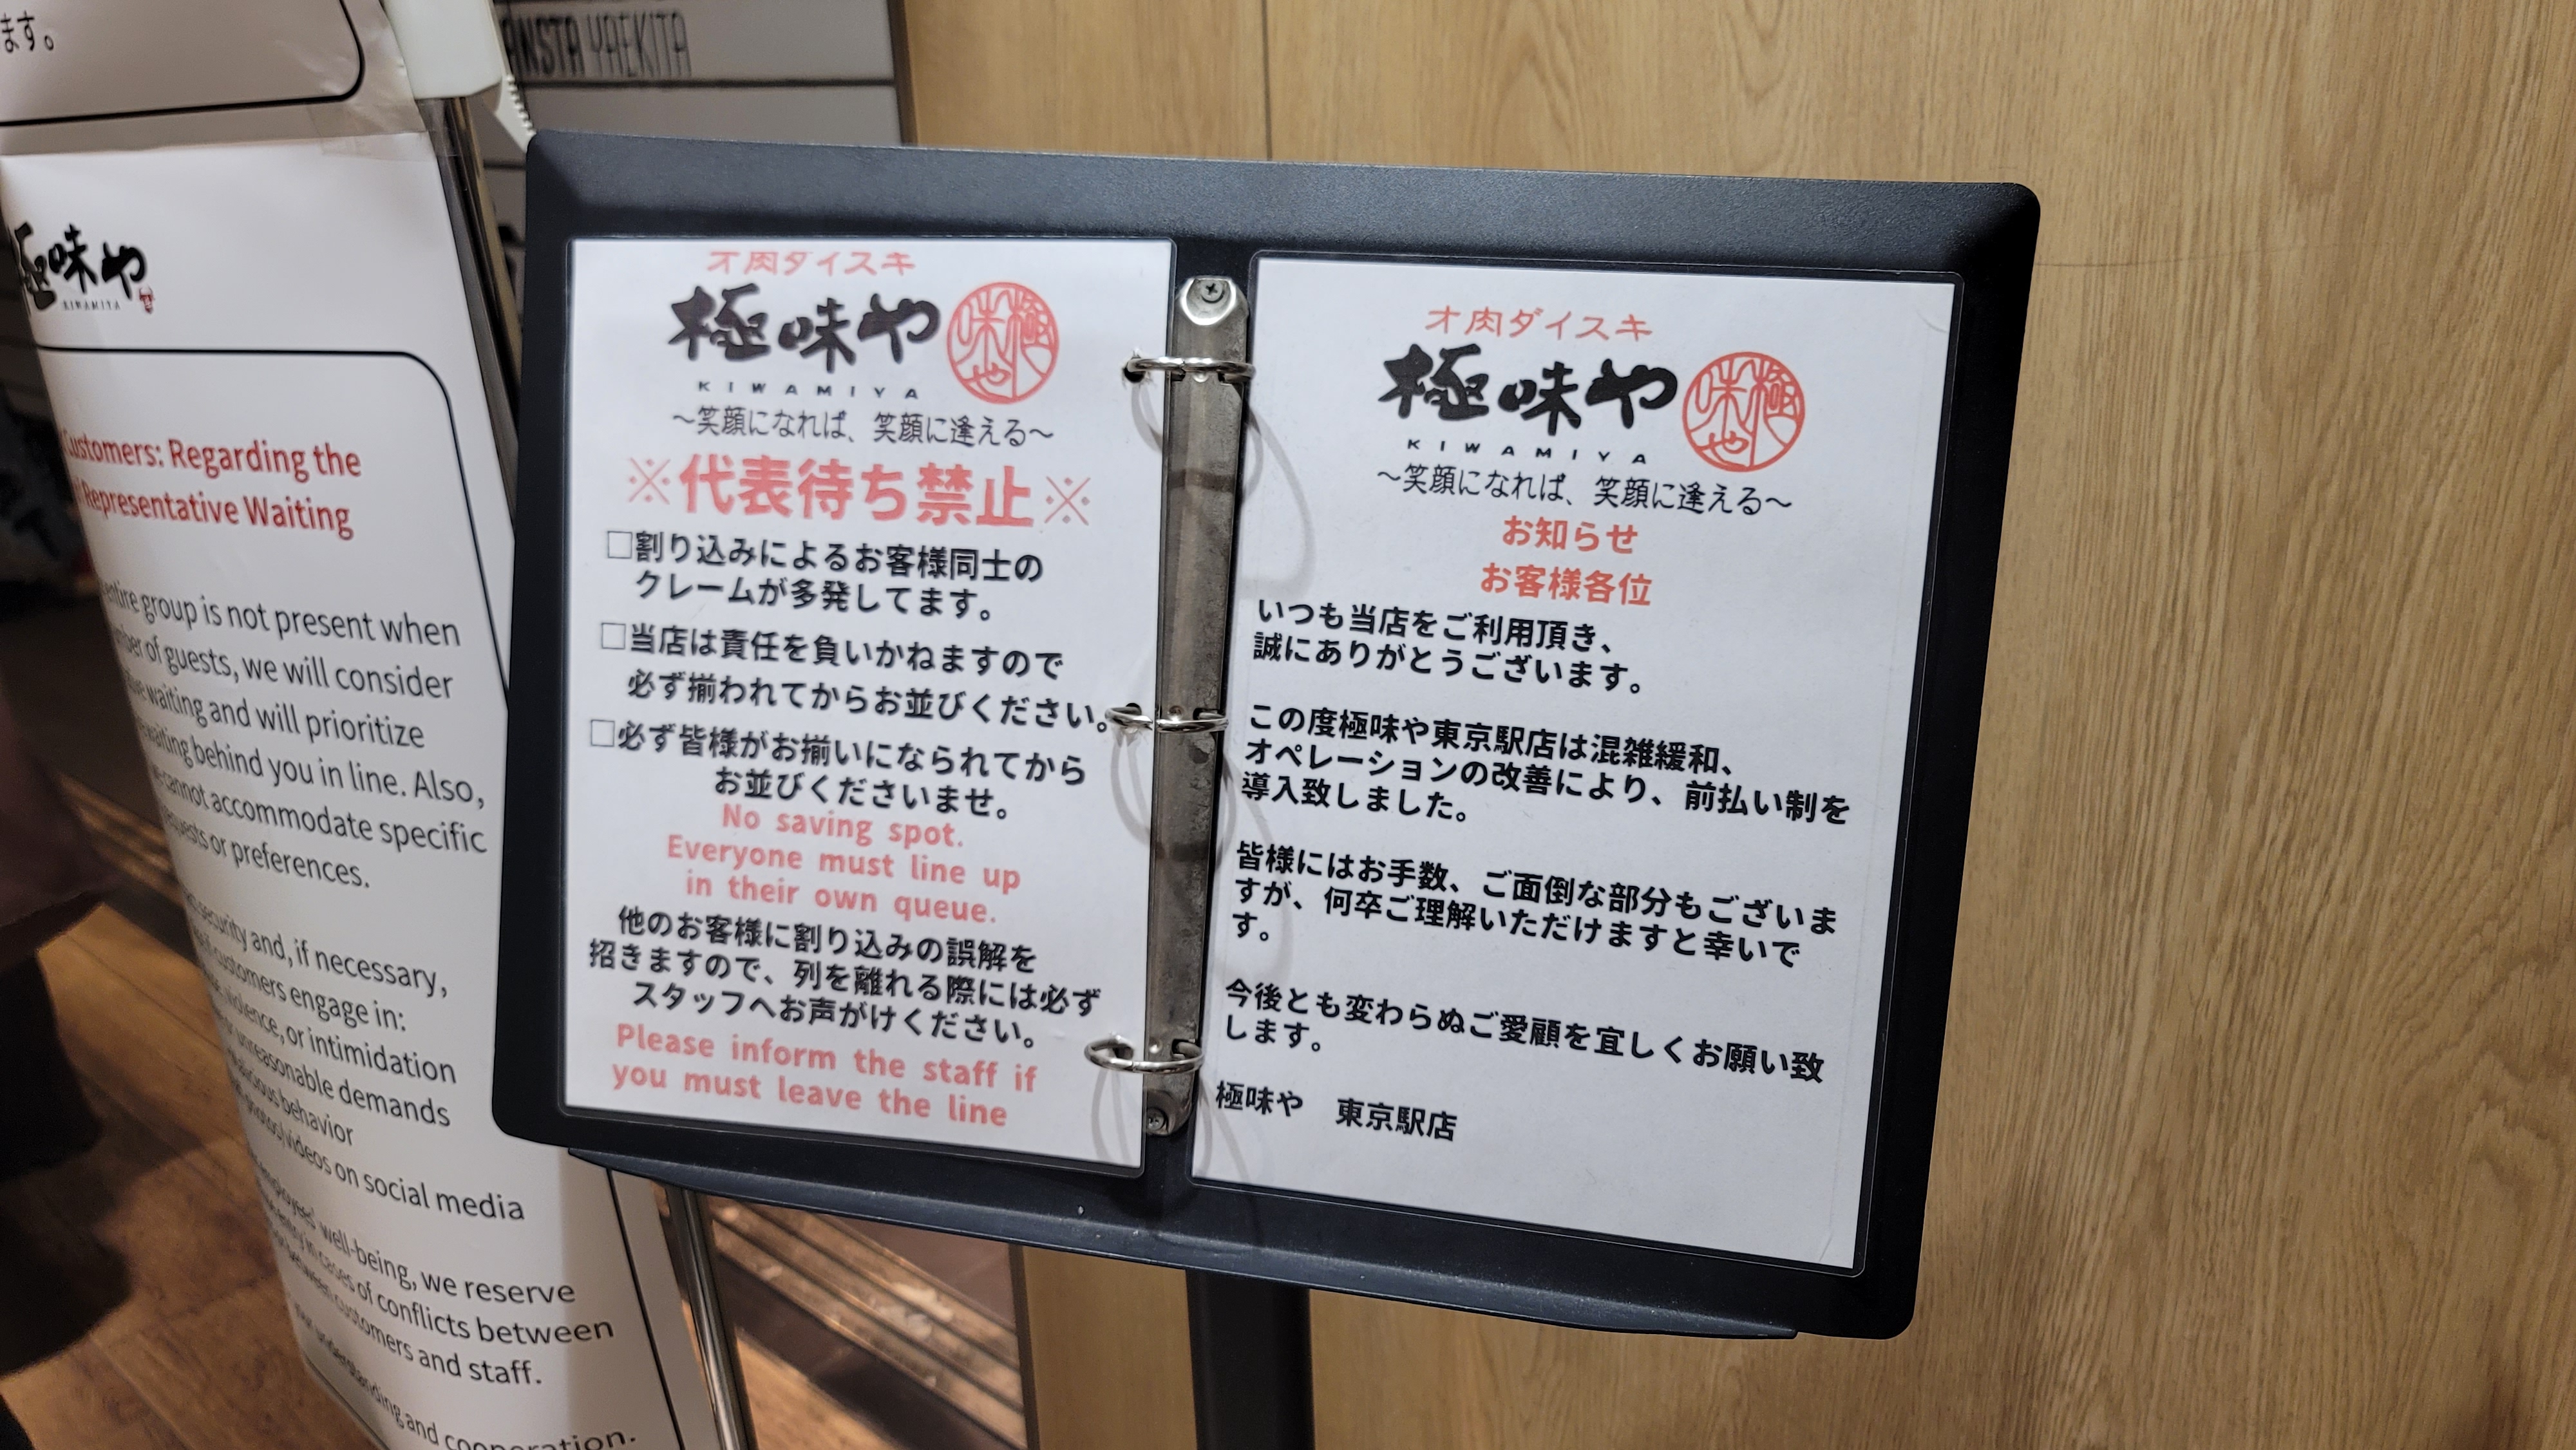 ます。
ANSTA YAEKITA
極味や
KIWAMIYA
Customers: Regarding the
Representative Waiting
entire group is not present when
of guests, we will consider
waiting and will prioritize
waiting behind you in line. Also,
cannot accommodate specific
or preferences.
security and, if necessary,
customers engage in:
violence, or intimidation
unreasonable demands
behavior
photos/videos on social media
employees' well-being, we reserve
in cases of conflicts between
between customers and staff.
understanding and cooperation.
オ肉ダイスキ
極味や
極味や
KIWAMIYA
～笑顔になれば、笑顔に逢える～
※代表待ち禁止※
□割り込みによるお客様同士の
クレームが多発してます。
□当店は責任を負いかねますので
必ず揃われてからお並びください。
□必ず皆様がお揃いになられてから
お並びくださいませ。
No saving spot.
Everyone must line up
in their own queue.
他のお客様に割り込みの誤解を
招きますので、列を離れる際には必ず
スタッフへお声がけください。
Please inform the staff if
you must leave the line
オ肉ダイスキ
極味や
極味や
KIWAMIYA
～笑顔になれば、笑顔に逢える～
お知らせ
お客様各位
いつも当店をご利用頂き、
誠にありがとうございます。
この度極味や東京駅店は混雑緩和、
オペレーションの改善により、前払い制を
導入致しました。
皆様にはお手数、ご面倒な部分もございま
すが、何卒ご理解いただけますと幸いで
す。
今後とも変わらぬご愛顧を宜しくお願い致
します。
極味や　東京駅店